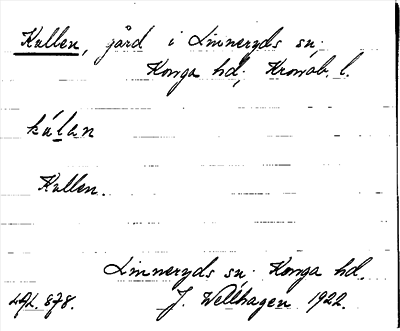 Kullen, gård i Linneryds sn;
Konga hd; Kronob. l.
kúlan
Kullen.
Linneryds sn. Konga hd.
J. Wellhagen 1922.
878.